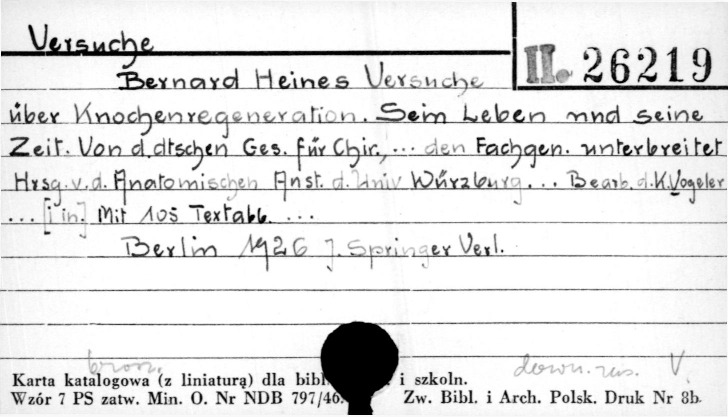 Versuche
II. 26219
Bernard Heines Versuche
über Knochenregeneration. Sein Leben nnd seine
Zeit. Von d. dtschen Ges. für Chir., ... den Fachgen. unterbreitet
Hrsg. v. d. Anatomischen Anst. d. Univ Würzburg ... Bearb. d. K. Vogeler
... [i in.] Mit 105 Textabb. ...
Berlin 1926 J. Springer Verl.
Karta katalogowa (z liniaturą) dla i szkoln.
Wzór 7 PS zatw. Min. O. Nr NDB 797/46. Zw. Bibl. i Arch. Polsk. Druk Nr 8b.